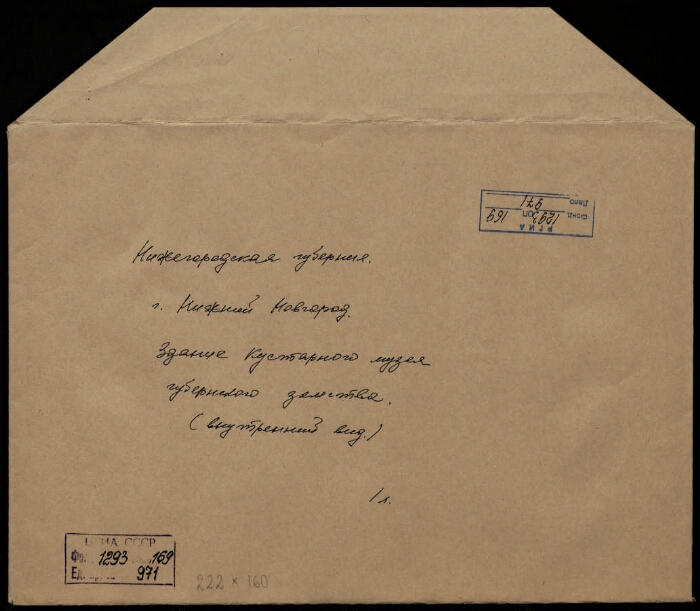 РГИА
Фонд 1293 оп 169
Дело 971
Нижегородская губерния.
г. Нижний Новгород.
Здание Кустарного музея
губернского земства.
(внутренний вид.)
1 л.
ЦГИА СССР
1293 169
Ед. 971
222 × 160